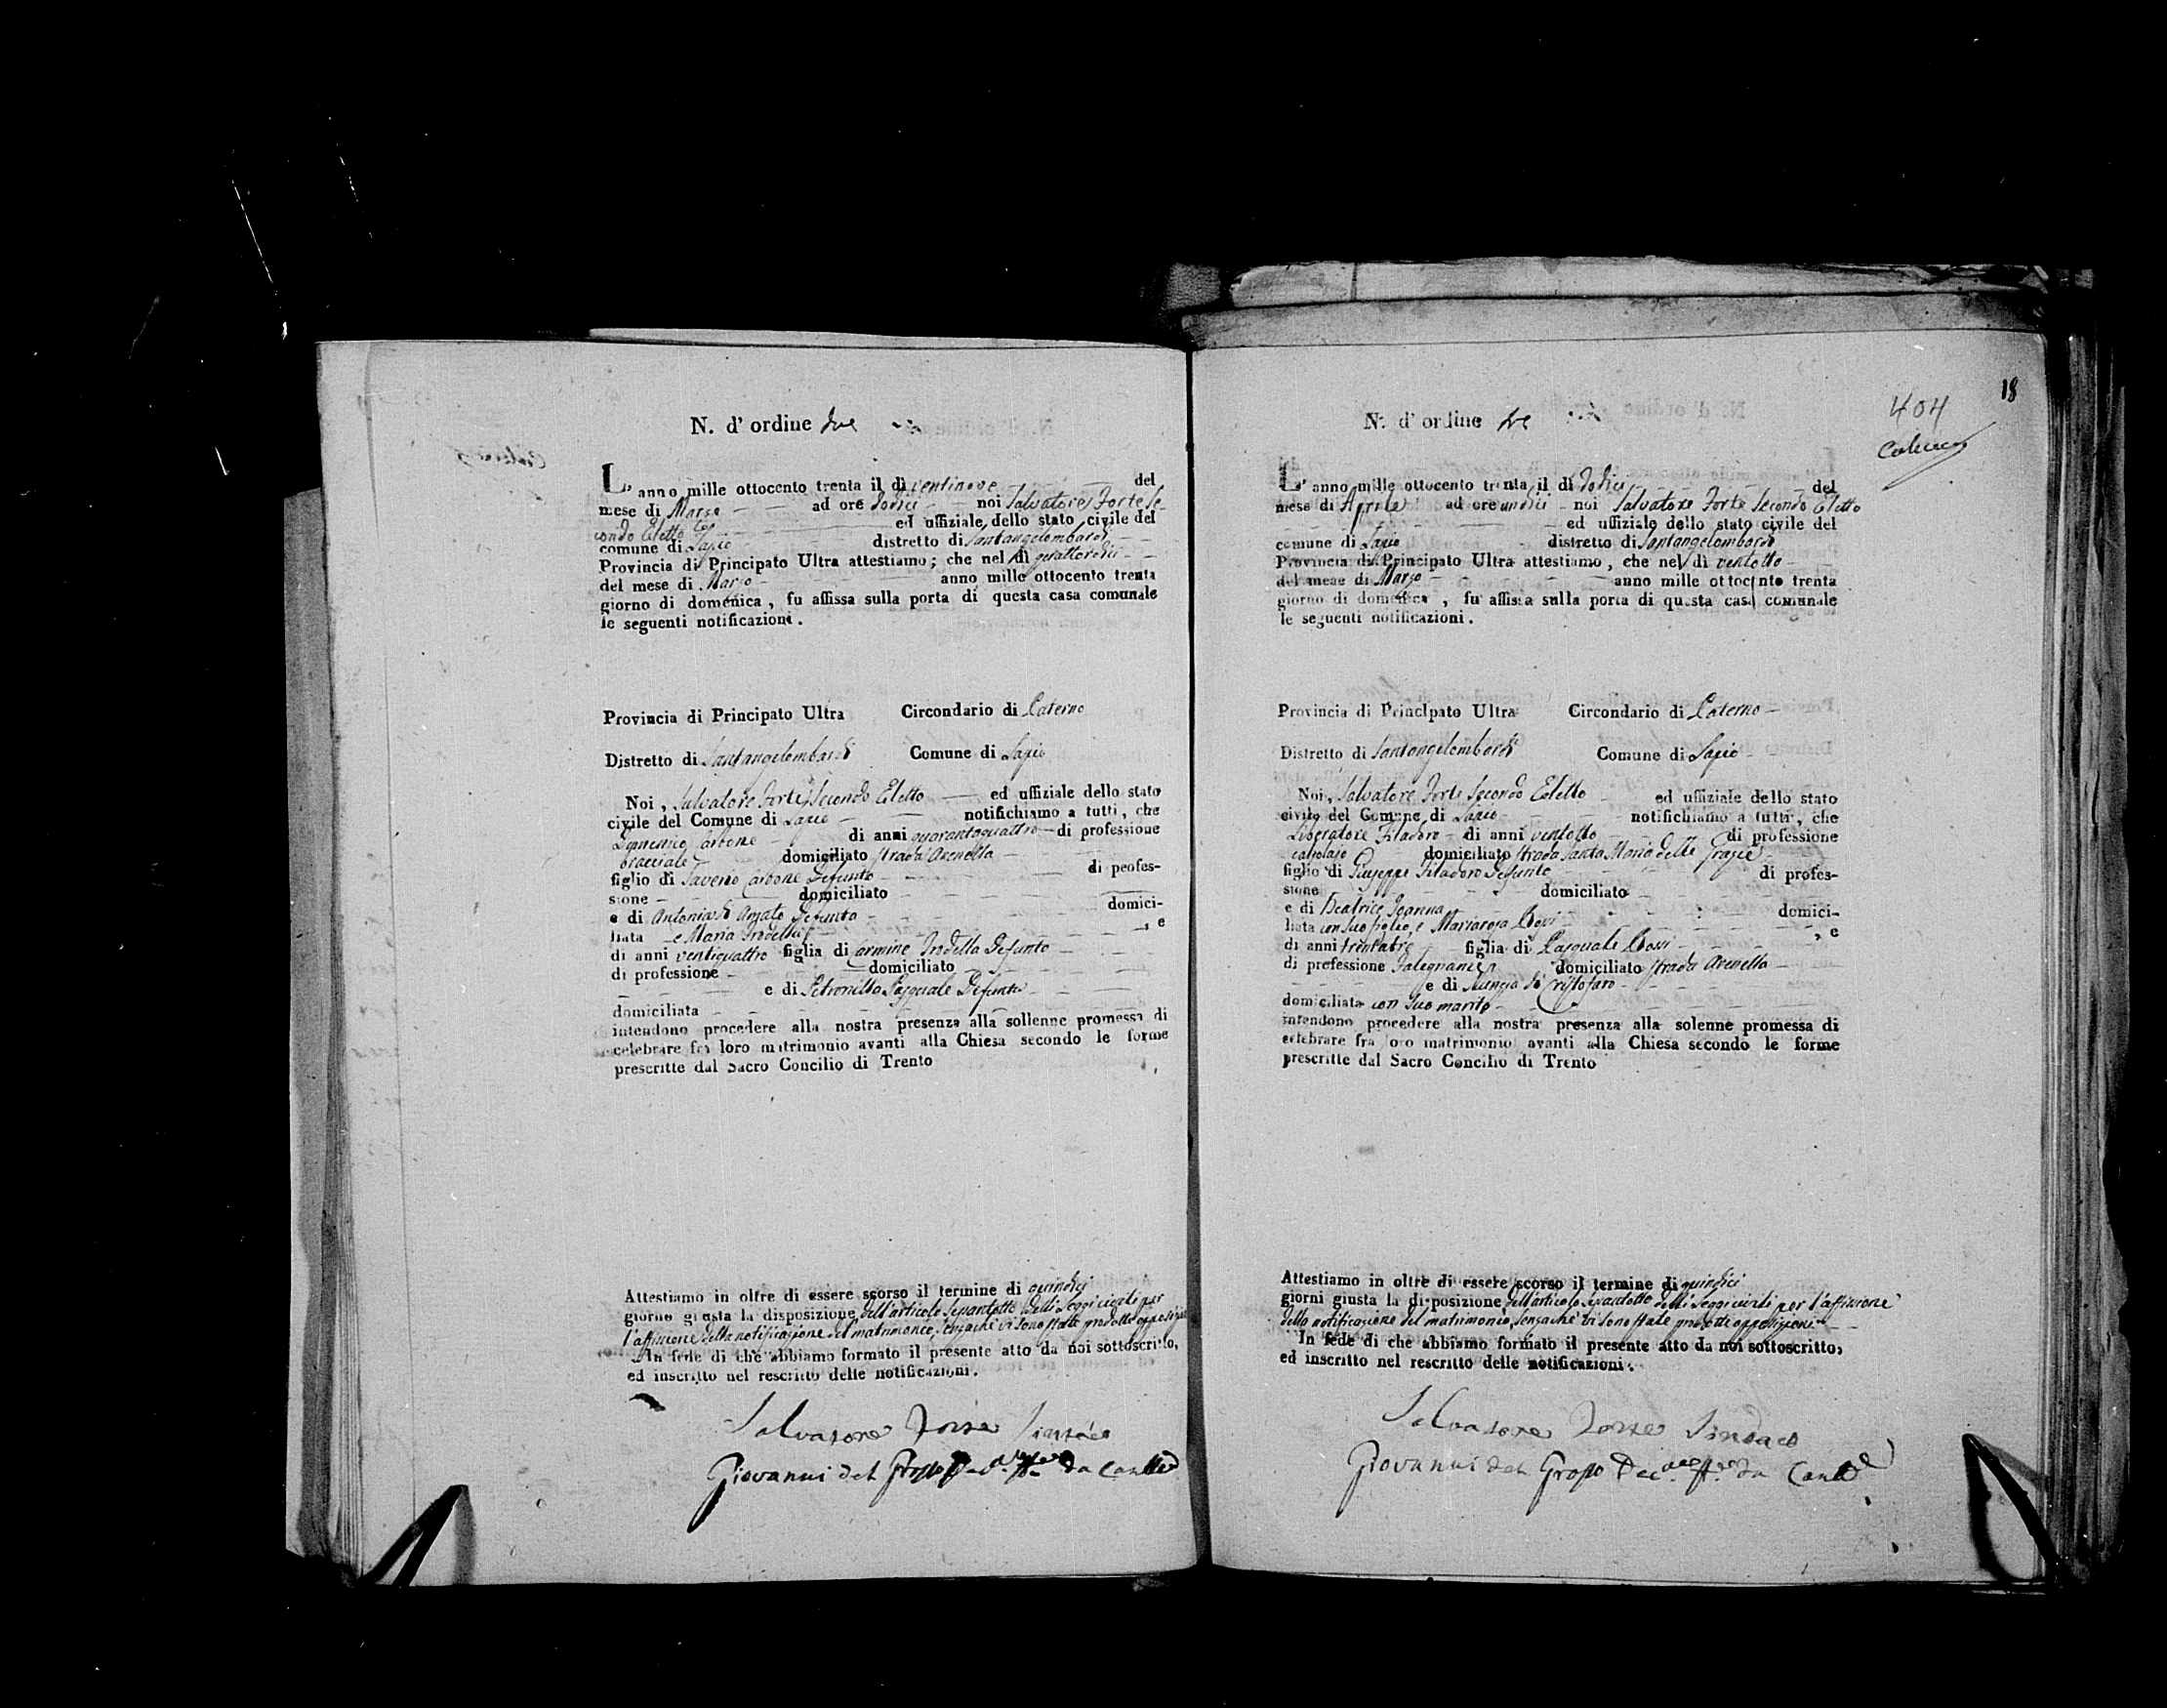 N. d' ordine due
L' anno mille ottocento trenta il dì ventinove del
mese di Marzo ad ore dodici noi Salvatore Forte Se-
condo Eletto ed uffiziale dello stato civile del
comune di Lapio distretto di Santangelombardi
Provincia di Principato Ultra attestiamo; che nel dì quattordici
del mese di Marzo anno mille ottocento trenta
giorno di domenica, fu affissa sulla porta di questa casa comunale
le seguenti notificazioni.
Provincia di Principato Ultra Circondario di Paterno
Distretto di Santangelombardi Comune di Lapio
Noi, Salvatore Forte Secondo Eletto ed uffiziale dello stato
civile del Comune di Lapio notifichiamo a tutti, che
Domenico Carbone di anni quarantaquattro di professione
bracciale domiciliato strada Arenella
figlio di Saverio Carbone Defunto di peofes-
sione domiciliato
e di Antonia di Amato Defunta domici-
liata e Maria Trodella , e
di anni ventiquattro figlia di Carmine Trodella Defunto
di professione domiciliato
e di Petronilla Pasquale Defunta
domiciliata
intendono procedere alla nostra presenza alla sollenne promessa di
celebrare fra loro matrimonio avanti alla Chiesa secondo le forme
prescritte dal Sacro Concilio di Trento
Attestiamo in oltre di essere scorso il termine di quindici
giorno giusta la disposizione dell'articolo sessantotto delli Leggi civili per
l'affissione della notificazione del matrimonio, senzaché vi sono state prodotte opposizioni
In fede di che abbiamo formato il presente atto da noi sottoscritto,
ed inscritto nel rescritto delle notificazioni.
Salvatore Forte Sindaco
Giovanni del Grosso da
18
404
N. d' ordine tre
L' anno mille ottocento trenta il dì dodici del
mese di Aprile ad ore undici noi Salvatore Forte Secondo Eletto
ed uffiziale dello stato civile del
comune di Lapio distretto di Santangelombardi
Provincia di Principato Ultra attestiamo, che nel dì ventotto
del mese di Marzo anno mille ottocento trenta
giorno di domenica, fu affissa sulla porta di questa casa comunale
le seguenti notificazioni.
Provincia di Principato Ultra Circondario di Paterno
Distretto di Santangelombardi Comune di Lapio
Noi, Salvatore Forte Secondo Eletto ed uffiziale dello stato
civile del Comune di Lapio notifichiamo a tutti, che
Liberatore Filadoro di anni ventotto di professione
calzolaio domiciliato strada Santa Maria delle Grazie
figlio di Giuseppe Filadoro Defunto di profes-
sione domiciliato
e di Beatrice Joanna domici-
liata con suo figlio, e Mariarosa , e
di anni trentatre figlia di Pasquale
di professione Falegname domiciliato strada Arenella
e di Nunzia di Cristofaro
domiciliata con suo marito
intendono procedere alla nostra presenza alla solenne promessa di
celebrare fra loro matrimonio avanti alla Chiesa secondo le forme
prescritte dal Sacro Concilio di Trento
Attestiamo in oltre di essere scorso il termine di quindici
giorni giusta la disposizione dell'articolo sessantotto delli Leggi civili per l'affissione
della notificazione del matrimonio, senzaché vi sono state prodotte opposizioni
In fede di che abbiamo formato il presente atto da noi sottoscritto,
ed inscritto nel rescritto delle notificazioni.
Salvatore Forte Sindaco
Giovanni del Grosso da